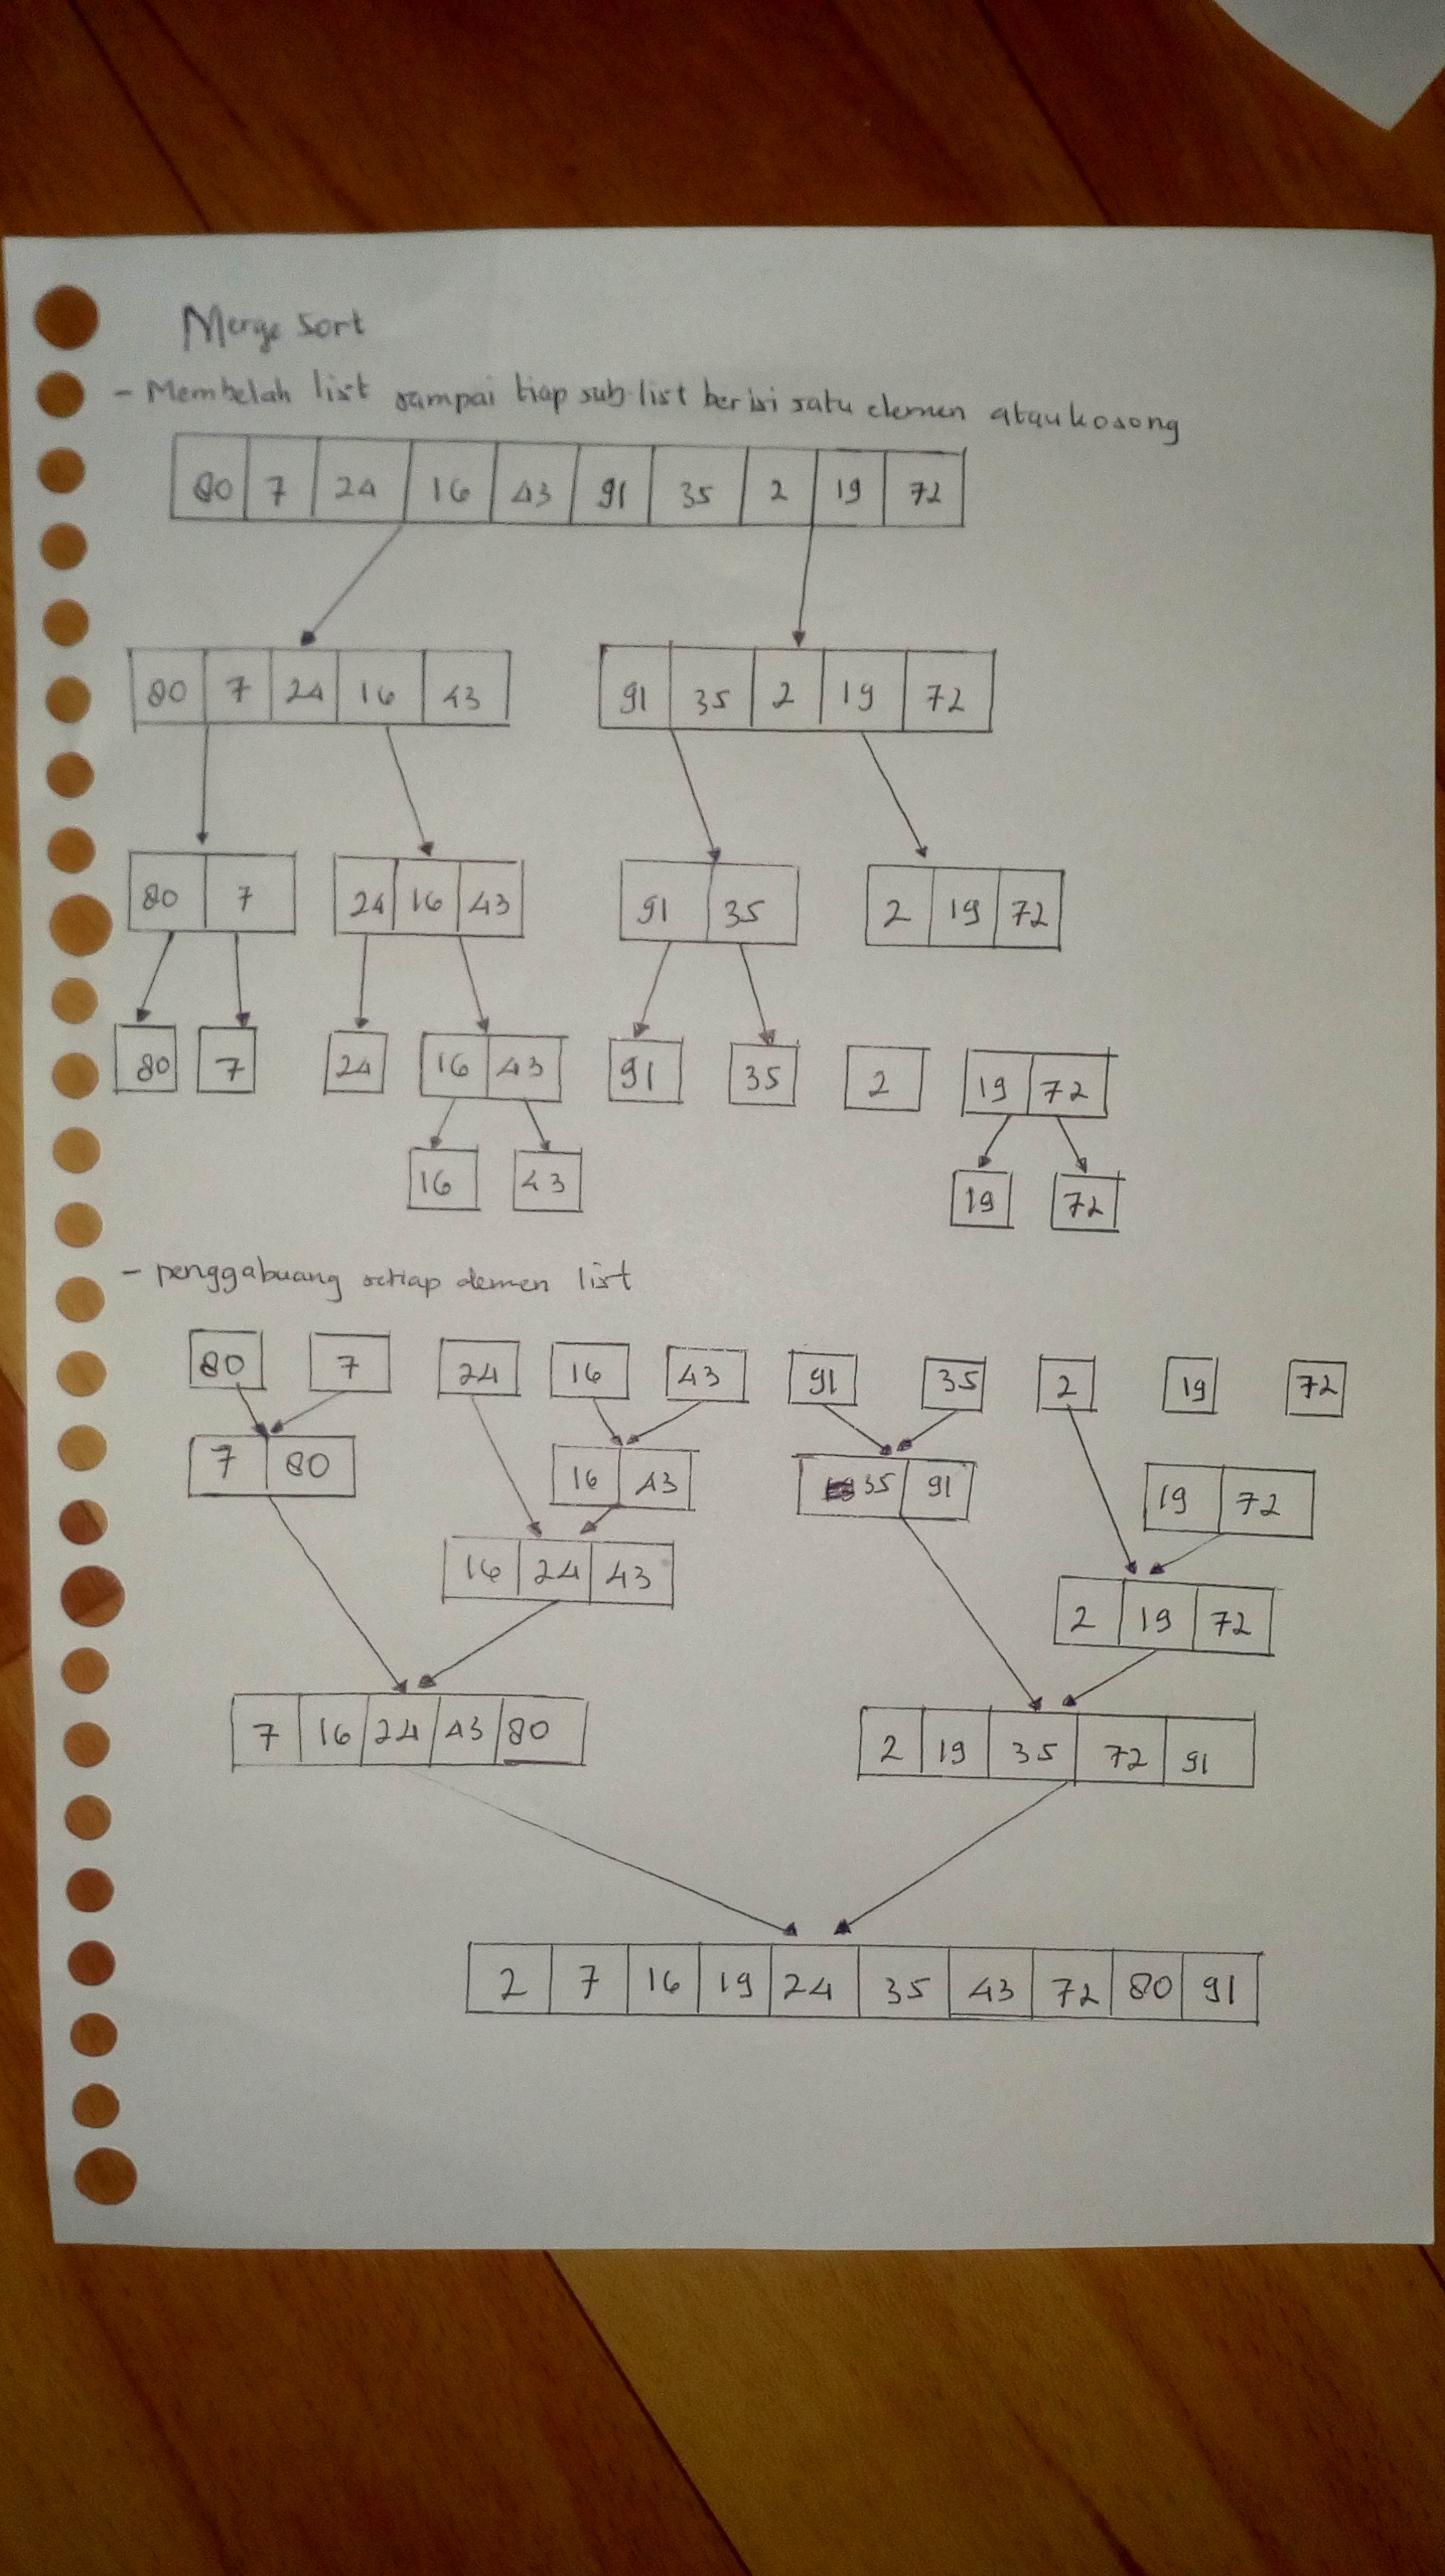 Merge Sort
- Membelah list sampai tiap sub-list berisi satu elemen atau kosong
80 7 24 16 43 91 35 2 19 72
80 7 24 16 43 91 35 2 19 72
80 7 24 16 43 91 35 2 19 72
80 7 24 16 43 91 35 2 19 72
16 43 19 72
- penggabuang setiap elemen list
80 7 24 16 43 91 35 2 19 72
7 80 16 43 35 91 19 72
16 24 43 2 19 72
7 16 24 43 80 2 19 35 72 91
2 7 16 19 24 35 43 72 80 91